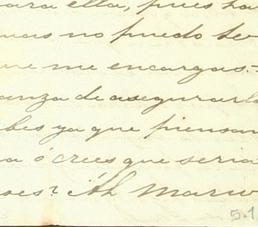 ara ella, pues ha
mas no puedo te
me encargas.
anza de asegurarl
bes ya que piensan
a ó crees que seria
oes? Ah Mario
5.1